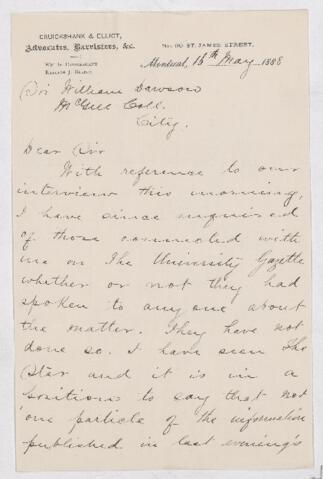 CRUICKSHANK & ELLIOT,
Advocates, Barristers, &c.
No. 90 ST. JAMES STREET,
Montreal, 15th May 1888
Sir William Dawson
McGill Coll.
City.
Dear Sir
With reference to our
interview this morning,
I have since enquired
of those connected with
me on The University Gazette
whether or not they had
spoken to any one about
the matter. They have not
done so. I have seen The
Star and it is in a
position to say that not
one particle of the information
published in last evening's